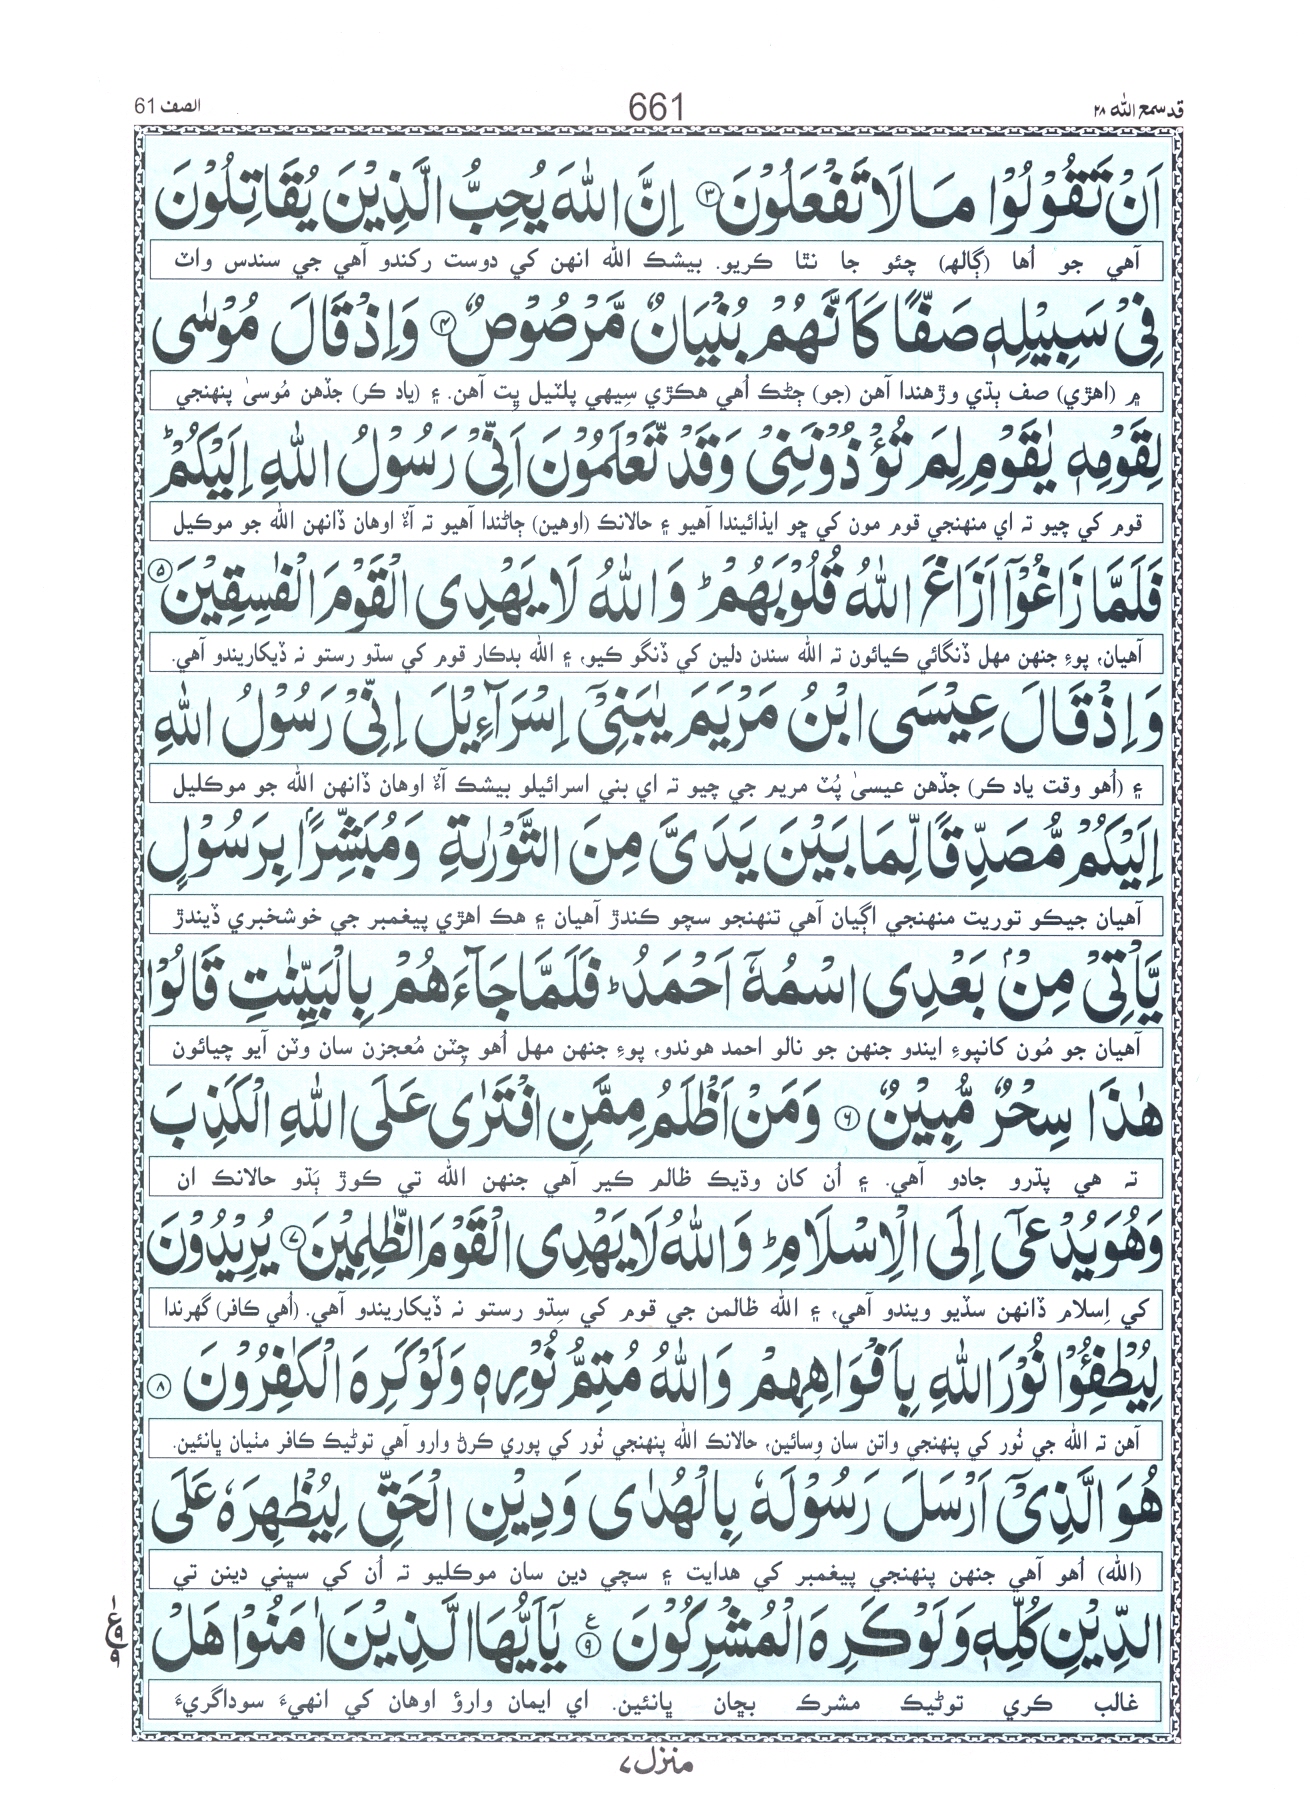 قد سمع الله ٢٨ 661 الصف 61
اَنْ تَقُوْلُوْا مَا لَا تَفْعَلُوْنَ ﴿٣﴾ اِنَّ اللّٰهَ يُحِبُّ الَّذِيْنَ يُقَاتِلُوْنَ
آهي جو اُها (ڳالهه) چئو جا نٿا ڪريو. بيشڪ الله انهن کي دوست رکندو آهي جي سندس واٽ
فِيْ سَبِيْلِهٖ صَفًّا كَاَنَّهُمْ بُنْيَانٌ مَّرْصُوْصٌ ﴿٤﴾ وَاِذْ قَالَ مُوْسٰى
۾ (اهڙي) صف ٻڌي وڙهندا آهن (جو) ڄڻڪ اُهي هڪڙي سِيهي پلٽيل ڀِت آهن. ۽ (ياد ڪر) جڏهن مُوسىٰ پنهنجي
لِقَوْمِهٖ يٰقَوْمِ لِمَ تُؤْذُوْنَنِيْ وَقَدْ تَّعْلَمُوْنَ اَنِّيْ رَسُوْلُ اللّٰهِ اِلَيْكُمْ ؕ
قوم کي چيو ته اي منهنجي قوم مون کي ڇو ايذائيندا آهيو ۽ حالانڪ (اوهين) ڄاڻندا آهيو ته آءٌ اوهان ڏانهن الله جو موڪليل
فَلَمَّا زَاغُوْٓا اَزَاغَ اللّٰهُ قُلُوْبَهُمْ ؕ وَاللّٰهُ لَا يَهْدِي الْقَوْمَ الْفٰسِقِيْنَ ﴿٥﴾
آهيان، پوءِ جنهن مهل ڏنگائي ڪيائون ته الله سندن دلين کي ڏنگو ڪيو، ۽ الله بدڪار قوم کي سڌو رستو نه ڏيکاريندو آهي.
وَاِذْ قَالَ عِيْسَى ابْنُ مَرْيَمَ يٰبَنِيْٓ اِسْرَآءِيْلَ اِنِّيْ رَسُوْلُ اللّٰهِ
۽ (اُهو وقت ياد ڪر) جڏهن عيسىٰ پُٽ مريم جي چيو ته اي بني اسرائيلو بيشڪ آءٌ اوهان ڏانهن الله جو موڪليل
اِلَيْكُمْ مُّصَدِّقًا لِّمَا بَيْنَ يَدَيَّ مِنَ التَّوْرٰىةِ وَمُبَشِّرًاۢ بِرَسُوْلٍ
آهيان جيڪو توريت منهنجي اڳيان آهي تنهنجو سچو ڪندڙ آهيان ۽ هڪ اهڙي پيغمبر جي خوشخبري ڏيندڙ
يَّاْتِيْ مِنْۢ بَعْدِي اسْمُهٗٓ اَحْمَدُ ؕ فَلَمَّا جَآءَهُمْ بِالْبَيِّنٰتِ قَالُوْا
آهيان جو مُون کانپوءِ ايندو جنهن جو نالو احمد هوندو، پوءِ جنهن مهل اُهو چِٽن مُعجزن سان وٽن آيو چيائون
هٰذَا سِحْرٌ مُّبِيْنٌ ﴿٦﴾ وَمَنْ اَظْلَمُ مِمَّنِ افْتَرٰى عَلَى اللّٰهِ الْكَذِبَ
ته هي پڌرو جادو آهي. ۽ اُن کان وڌيڪ ظالم ڪير آهي جنهن الله تي ڪوڙ ٻَڌو حالانڪ ان
وَهُوَ يُدْعٰٓى اِلَى الْاِسْلَامِ ؕ وَاللّٰهُ لَا يَهْدِي الْقَوْمَ الظّٰلِمِيْنَ ﴿٧﴾ يُرِيْدُوْنَ
کي اِسلام ڏانهن سڏيو ويندو آهي، ۽ الله ظالمن جي قوم کي سِڌو رستو نه ڏيکاريندو آهي. (اُهي ڪافر) گهرندا
لِيُطْفِـُٔوْا نُوْرَ اللّٰهِ بِاَفْوَاهِهِمْ وَاللّٰهُ مُتِمُّ نُوْرِهٖ وَلَوْ كَرِهَ الْكٰفِرُوْنَ ﴿٨﴾
آهن ته الله جي نُور کي پنهنجي واتن سان وِسائين، حالانڪ الله پنهنجي نُور کي پوري ڪرڻ وارو آهي توڻيڪ ڪافر مٺيان ڀانئين.
هُوَ الَّذِيْٓ اَرْسَلَ رَسُوْلَهٗ بِالْهُدٰى وَدِيْنِ الْحَقِّ لِيُظْهِرَهٗ عَلَى
(الله) اُهو آهي جنهن پنهنجي پيغمبر کي هدايت ۽ سچي دين سان موڪليو ته اُن کي سڀني دينن تي
الدِّيْنِ كُلِّهٖ وَلَوْ كَرِهَ الْمُشْرِكُوْنَ ﴿٩﴾ ع يٰٓاَيُّهَا الَّذِيْنَ اٰمَنُوْا هَلْ
غالب ڪري توڻيڪ مشرڪ بڇان ڀانئين. اي ايمان وارؤ اوهان کي انهيءَ سوداگريءَ
منزل ٧